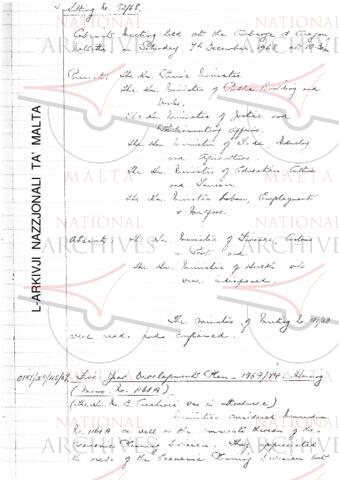 Sitting No. 72/68.
Cabinet Meeting held at the Auberge d'Aragon
Valletta - Saturday 7th December 1968 at
Present: The Hon. Prime Minister
The Hon. Minister of Public Building and
Works.
The Hon. Minister of Justice and
Parliamentary Affairs.
The Hon. Minister of Trade, Industry
and Agriculture.
The Hon. Minister of Education, Culture
and Tourism.
The Hon. Minister Labour, Employment
& Welfare.
Absent: The Hon. Minister of Finance, Customs
& Port and
The Hon. Minister of Health who
were indisposed.
The minutes of Meeting No. 71/68
were read and confirmed.
Five Year Development Plan - 1969/74:
(Memo. No. 1161A)
(The Hon. Mr. E. was in attendance)
Ministers considered Memorandum
No. 1161A as well as the comments thereon of the
Economic Planning Division. They appreciated
the views of the Economic Planning Division but
L-ARKIVJI NAZZJONALI TA' MALTA
NATIONAL
ARCHIVES
NATIONAL
ARCHIVES
NATIONAL
ARCHIVES
NATIONAL
ARCHIVES